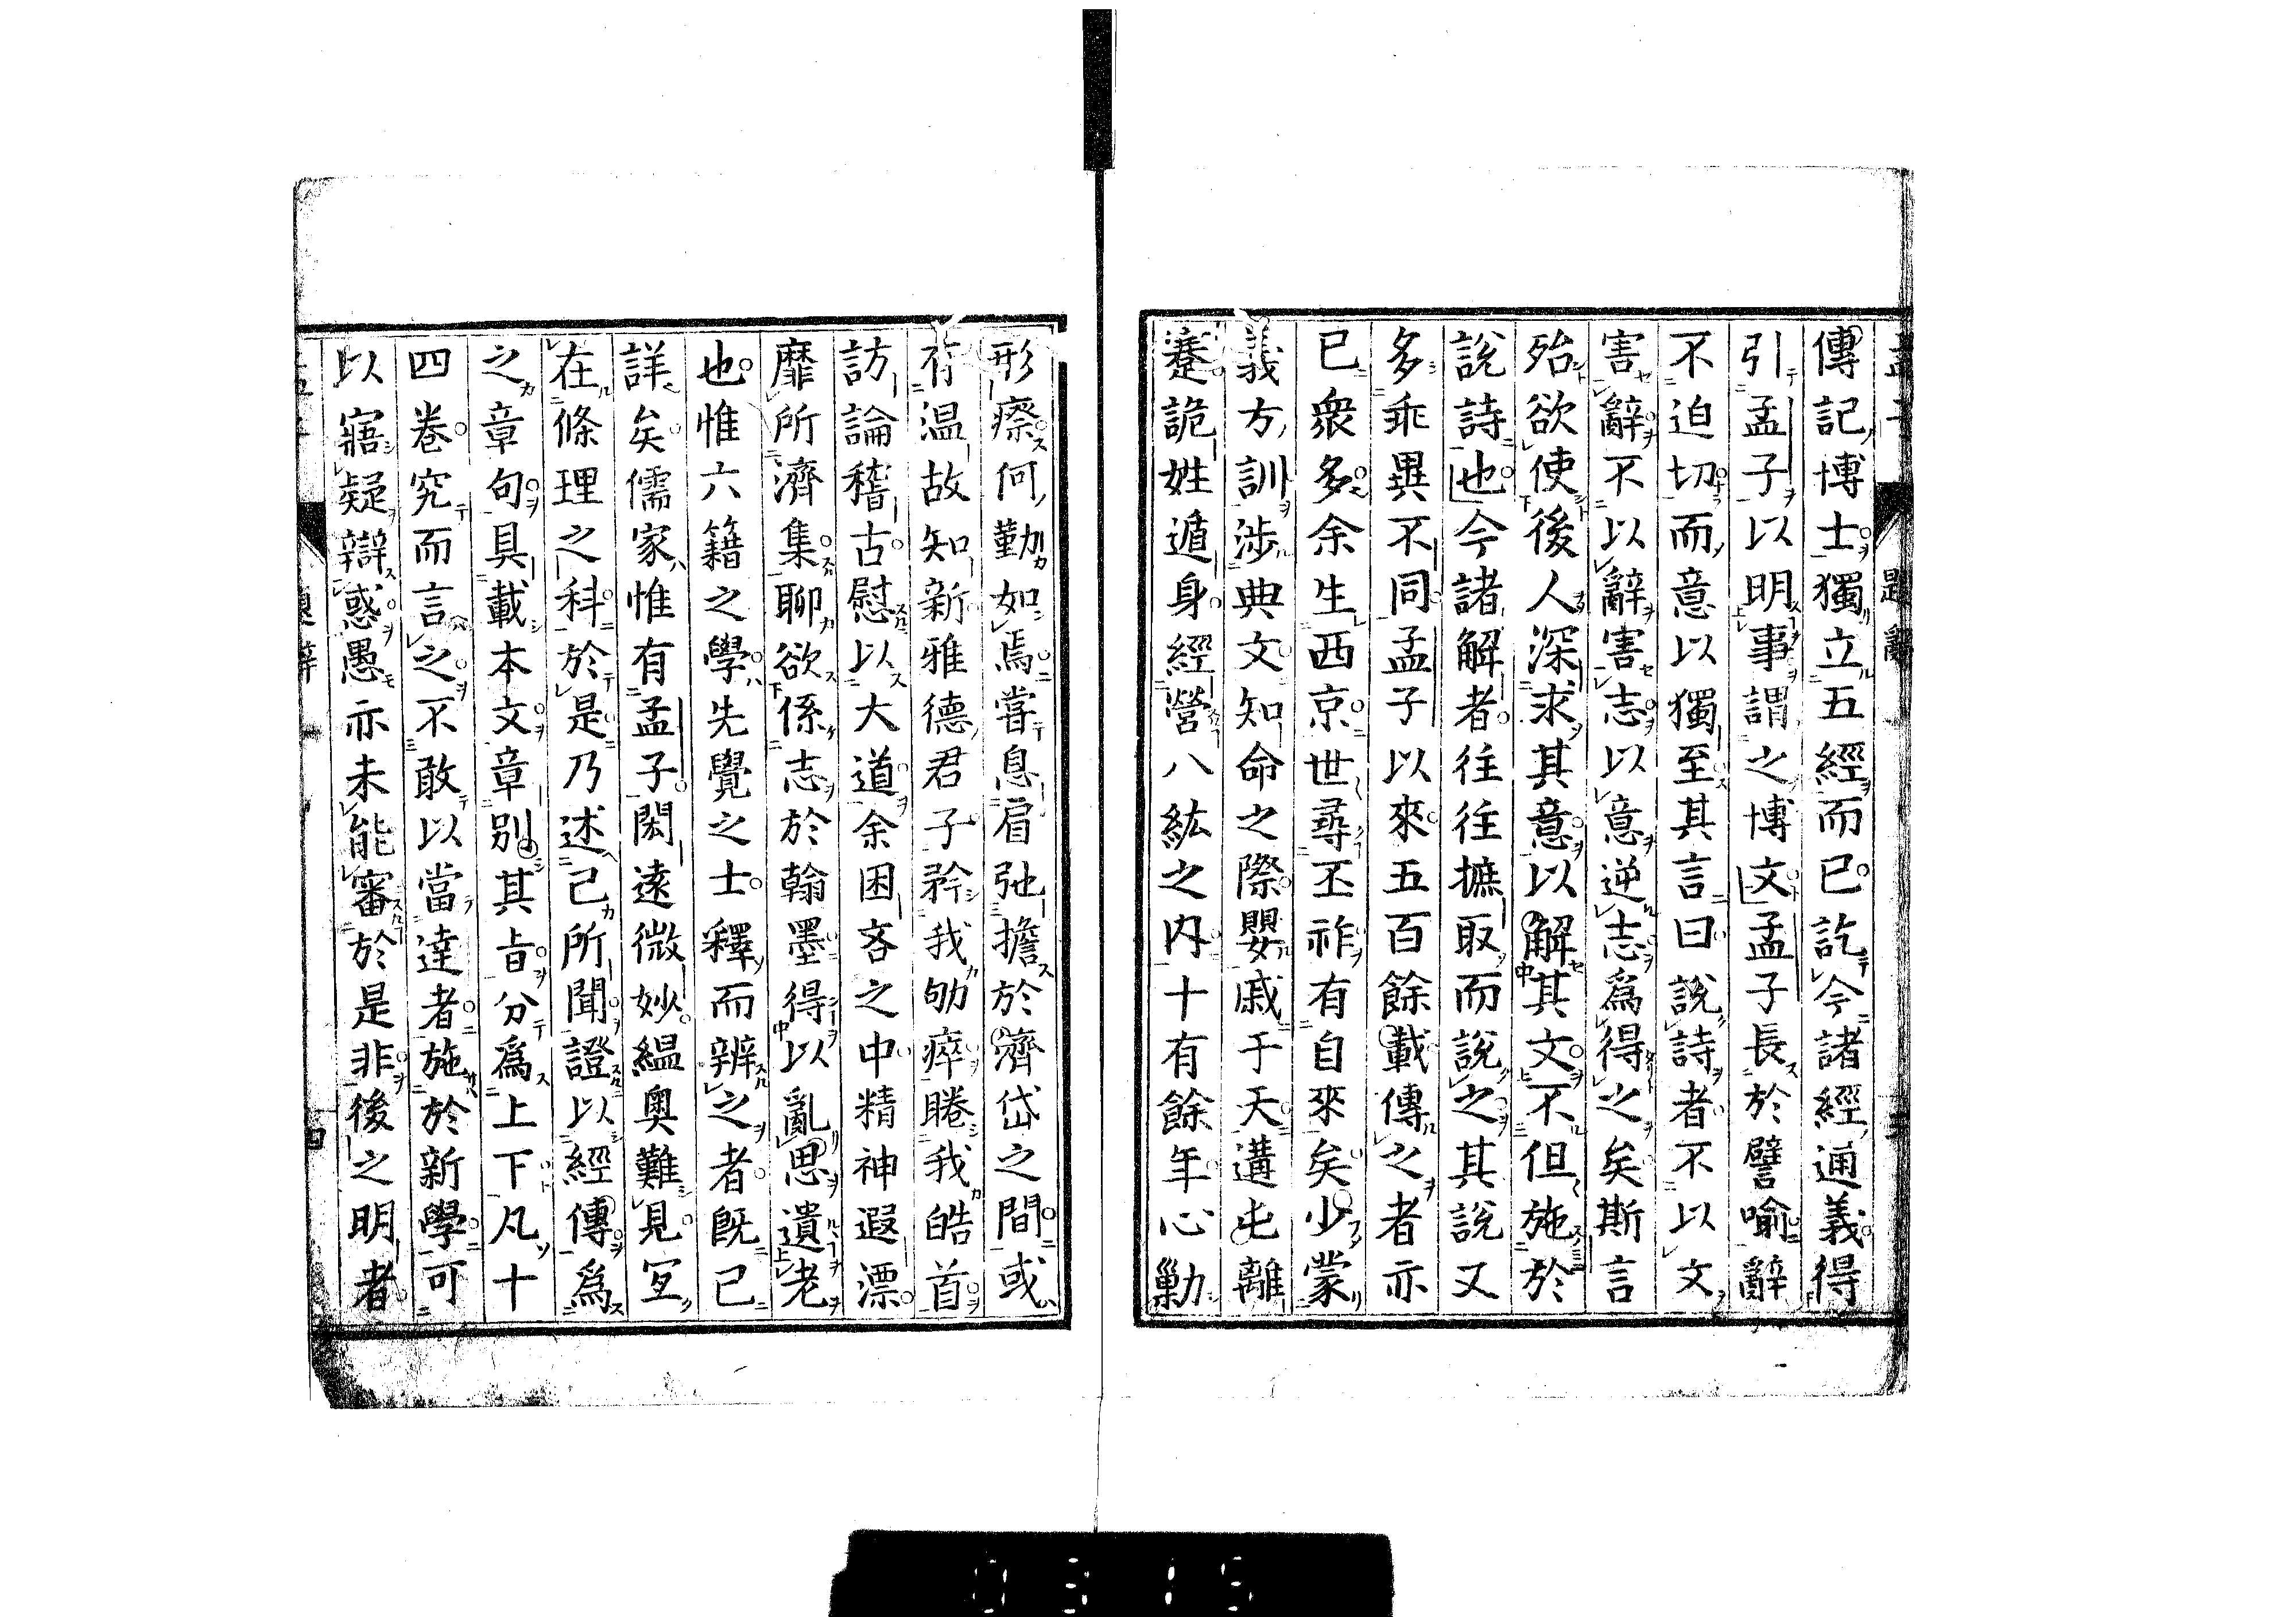 傳記博士獨立五經而已訖今諸經通義得
引孟子以明事謂之博文孟子長於譬喻辭
不迫切而意以獨至其言曰説詩者不以文
害辭不以辭害志以意逆志爲得之矣斯言
殆欲使後人深求其意以解其文不但施於
説詩也今諸解者往往摭取而説之其説又
多乖異不同孟子以來五百餘載傳之者亦
已衆多余生西京世尋丕祚有自來矣少蒙
義方訓涉典文知命之際嬰戚于天遘屯離
蹇詭姓遁身經營八紘之内十有餘年心勦
形瘵何勤如焉嘗息肩弛擔於濟岱之間或
有温故知新雅德君子矜我劬瘁睠我皓首
訪論稽古慰以大道余困吝之中精神遐漂
靡所濟集聊欲係志於翰墨得以亂思遺老
也惟六籍之學先覺之士釋而辨之者既已
詳矣儒家惟有孟子閎遠微妙緼奥難見宜
在條理之科於是乃述己所聞證以經傳爲
之章句具載本文章别其旨分爲上下凡十
四卷究而言之不敢以當達者施於新學可
以寤疑辯惑愚亦未能審於是非後之明者
題辭
四
0315